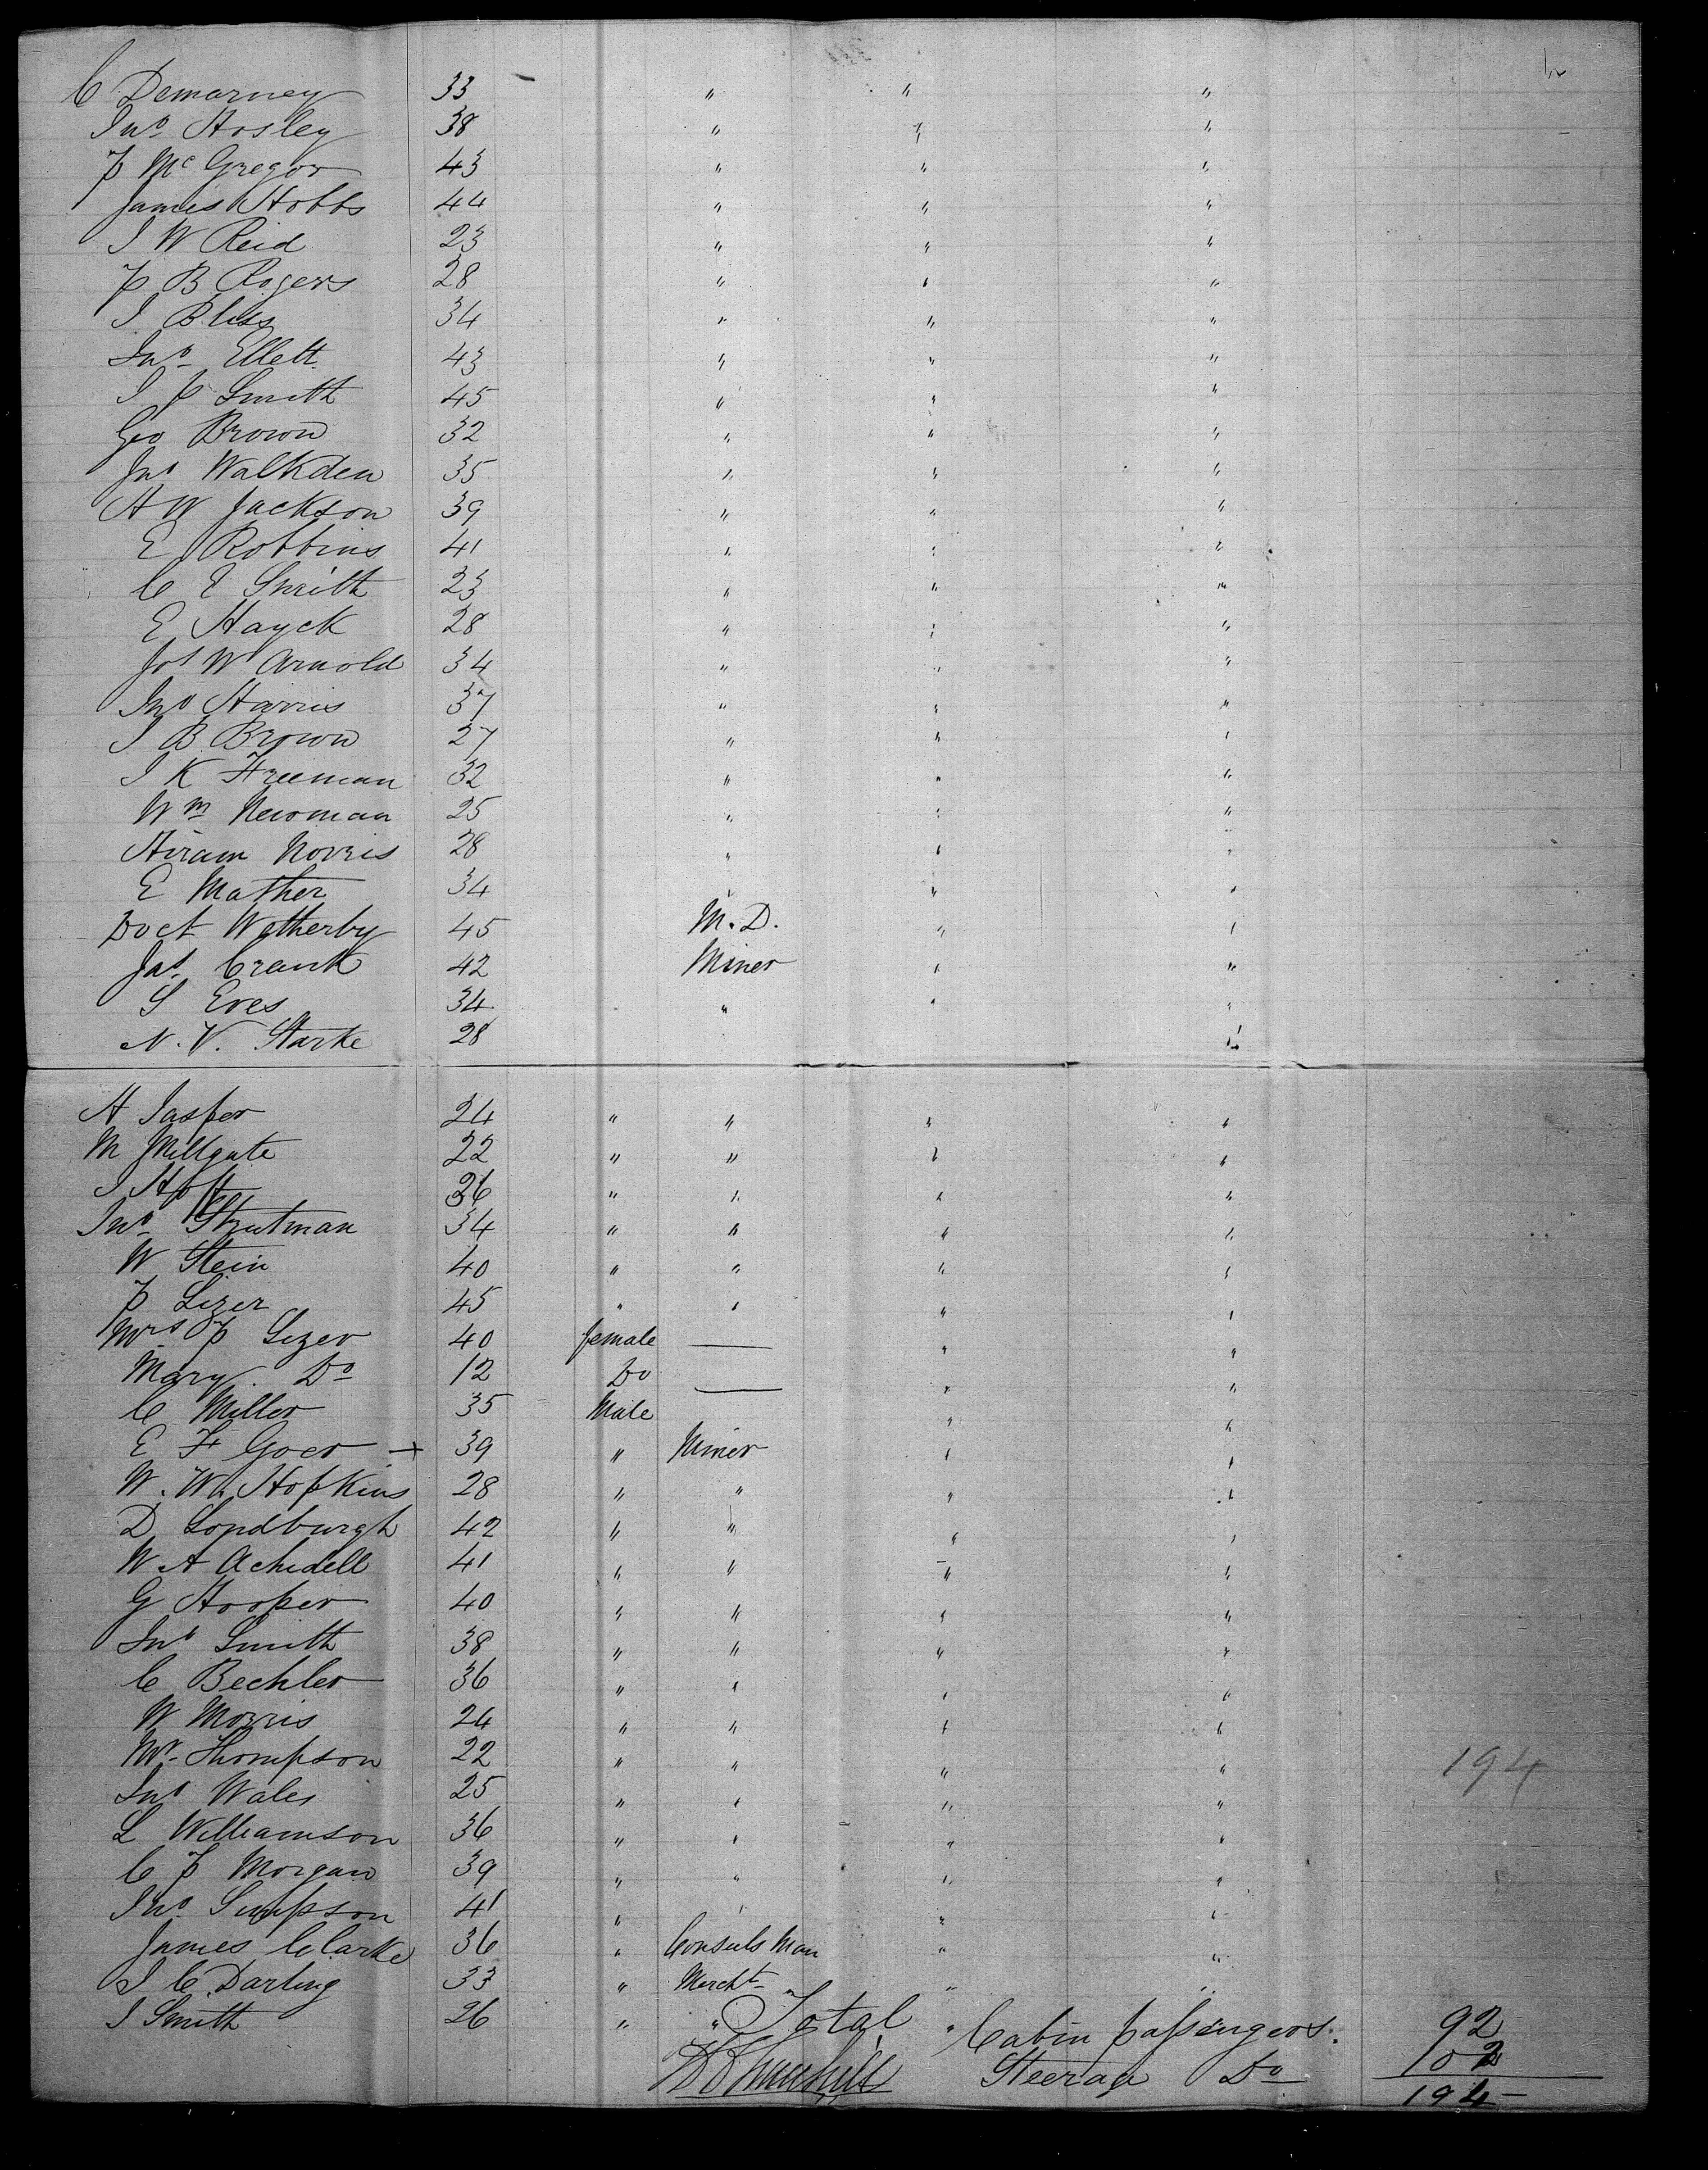 C Demarney 33 " " "
Jno Hosley 38 " " "
P McGregor 43 " " "
James Hobbs 44 " " "
J W Reid 23 " " "
P B Rogers 28 " " "
J Bliss 34 " " "
Jno Ellett 43 " " "
J P Smith 45 " " "
Geo Brown 32 " " "
Jno Walkden 35 " " "
H W Jackson 39 " " "
E Robbins 41 " " "
C E Smith 23 " " "
E Hayck 28 " " "
Jos W Arnold 34 " " "
Jno Harris 37 " " "
J B Brown 27 " " "
J K Freeman 32 " " "
Wm Newman 25 " " "
Hiram Norris 28 " " "
E Mather 34 " " "
Doct Wetherby 45 M.D. " "
Jas Crank 42 Miner " "
S Eves 34 " " "
N. V. Starke 28 "
H Jasper 24 " " " "
M Millgate 22 " " " "
J Hoft 26 " " " "
Jno Strutman 34 " " " "
W Stein 40 " " " "
P Lizer 45 " " " "
Mrs P Lizer 40 female — " "
Mary Do 12 Do — " "
C Miller 35 Male " "
E F Goer + 39 " Miner " "
W. W. Hopkins 28 " " " "
D Londburgh 42 " " " "
W A Achidell 41 " " " "
G Hooper 40 " " " "
Jno Smith 38 " " " "
C Bechler 36 " " " "
W Morris 24 " " " "
Mr Thompson 22 " " " "
194
Jno Wales 25 " " " "
L Williamson 36 " " " "
C P Morgan 39 " " " "
Jno Simpson 41 " " " "
James Clarke 36 " Consuls Man " "
J C Darling 33 " Mercht " "
J Smith 26 " " "
Total Cabin passengers. 92
Steerage Do 102
194